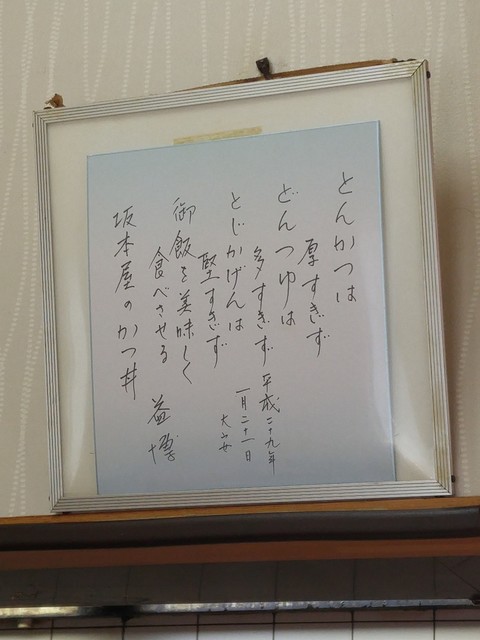 とんかつは
厚すぎず
どんつゆは
多すぎず
とじかげんは
堅すぎず
御飯を美味しく
食べさせる
坂本屋のかつ丼
益博
平成二十九年
一月二十一日